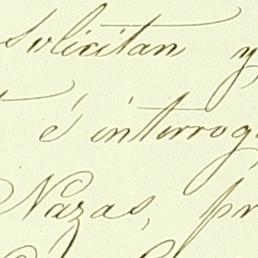 solicitan y
é interrog
Nazas, pr